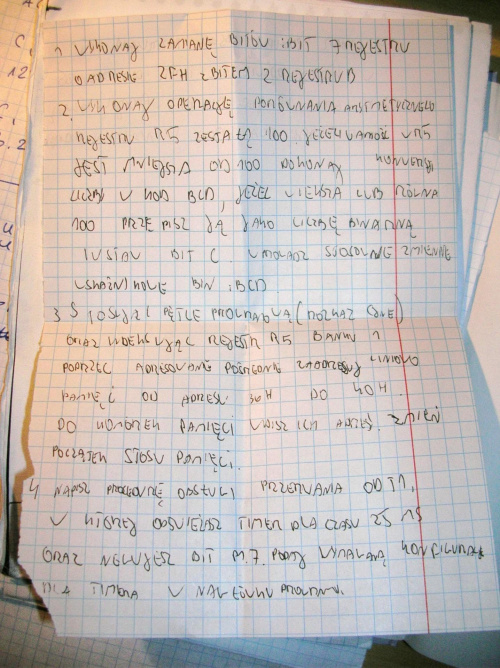 1 WYKONAJ ZAMIANĘ BITÓW : BIT 7 REJESTRU
O ADRESIE 2FH Z BITEM 2 REJESTRU B
2. WYKONAJ OPERACJĘ PORÓWNANIA ARYTMETYCZNEGO
REJESTRU R5 ZE STAŁĄ 100 JEŻELI WARTOŚĆ W R5
JEST MNIEJSZA OD 100 DOKONAJ KONWERSJI
LICZBY W KOD BCD, JEŻELI WIĘKSZA LUB RÓWNA
100 PRZEPISZ JĄ JAKO LICZBĘ BINARNĄ
I USTAW BIT C. STOSOWNE ZMIENNE
WSKAŹNIKOWE BIN i BCD
3 PĘTLE PROGRAMOWĄ
ORAZ INDEKSUJĄC REJESTR R5 BANKU 1
POPRZEZ ADRESOWANIE POŚREDNIE ZAADRESUJ LINIOWO
PAMIĘĆ OD ADRESU 30H DO 40H.
DO KOMÓREK PAMIĘCI WPISZ ICH ADRES. ZMIEŃ
POCZĄTEK STOSU PAMIĘCI.
4 NAPISZ PROCEDURĘ OBSŁUGI PRZERWANIA OD T1,
W KTÓREJ ODŚWIEŻASZ TIMER DLA CZASU 25 MS
ORAZ NEGUJESZ BIT P1.7. PODAJ WYMAGANĄ KONFIGURACJE
DLA TIMERA W NAGŁÓWKU PROGRAMU.